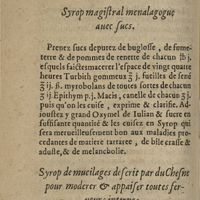 Syrop magistral menalagogue
auec sucs.
Prenez sucs deputez de buglosse, de fume-
terre & de pommes de renette de chacun lb j.
esquels faictes macerer l'espace de vingt quatre
heures Turbith gommeux ℥ j. fueilles de sené
℥ ij. ß. myrobolans de toutes sortes de chacun
℥ ij. Epithym p. j. Macis, canelle de chacun ℥ j.
puis qu'on les cuise, exprime & clarifie. Ad-
ioustez y grand Oxymel de Iulian & sucre en
suffisante quantité & les cuisez en Syrop qui
sera merueilleusement bon aux maladies pro-
cedantes de matiere tartaree, de bile crasse &
aduste, & de melancholie.
Syrop de mucilages descrit par du Chesne
pour moderer & appaiser toutes fer-